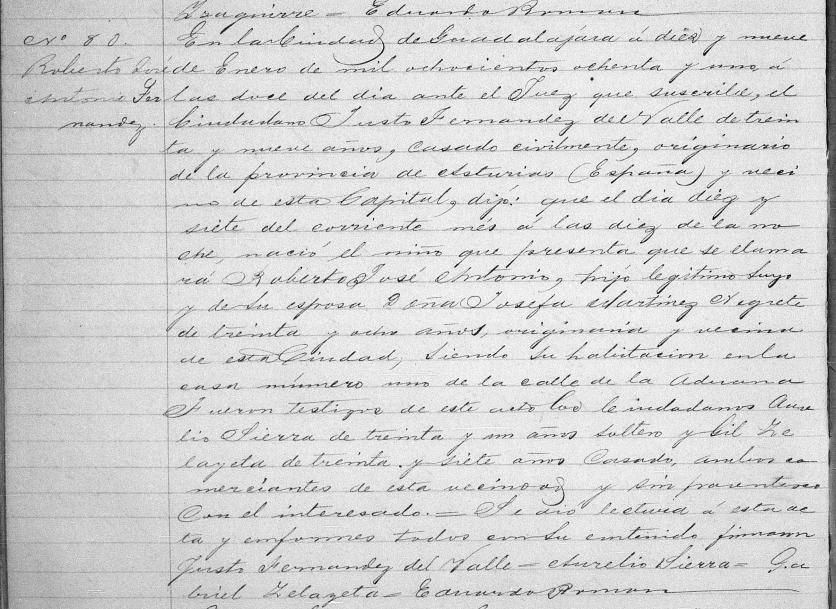 Izaguirre = Eduardo Roman
No 80.
Roberto José
Antonio Fer
nandez.
En la Ciudad de Guadalajara á diez y nueve
de Enero de mil ochocientos ochenta y uno á
las doce del dia ante el Juez que suscribe, el
Ciudadano Justo Fernandez del Valle de trein
ta y nueve años, casado civilmente, originario
de la provincia de Asturias (España) y veci
no de esta Capital, dijo: que el dia diez y
siete del corriente més á las diez de la no
che, nació el niño que presenta que se llama
rá Roberto José Antonio, hijo legítimo suyo
y de su esposa Doña Josefa Martinez Negrete
de treinta y ocho años, originaria y vecina
de esta Ciudad, siendo su habitacion en la
casa número uno de la calle de la Aduana
Fueron testigos de este acto los Ciudadanos Aure
lio Sierra de treinta y un años soltero y Gil Ze
layeta de treinta y siete años casado, ambos co
merciantes de esta vecindad y sin parentesco
con el interesado. = Se dió lectura á esta ac
ta y conformes todos con su contenido firmaron
Justo Fernandez del Valle = Aurelio Sierra = Ga
briel Zelayeta = Eduardo Roman